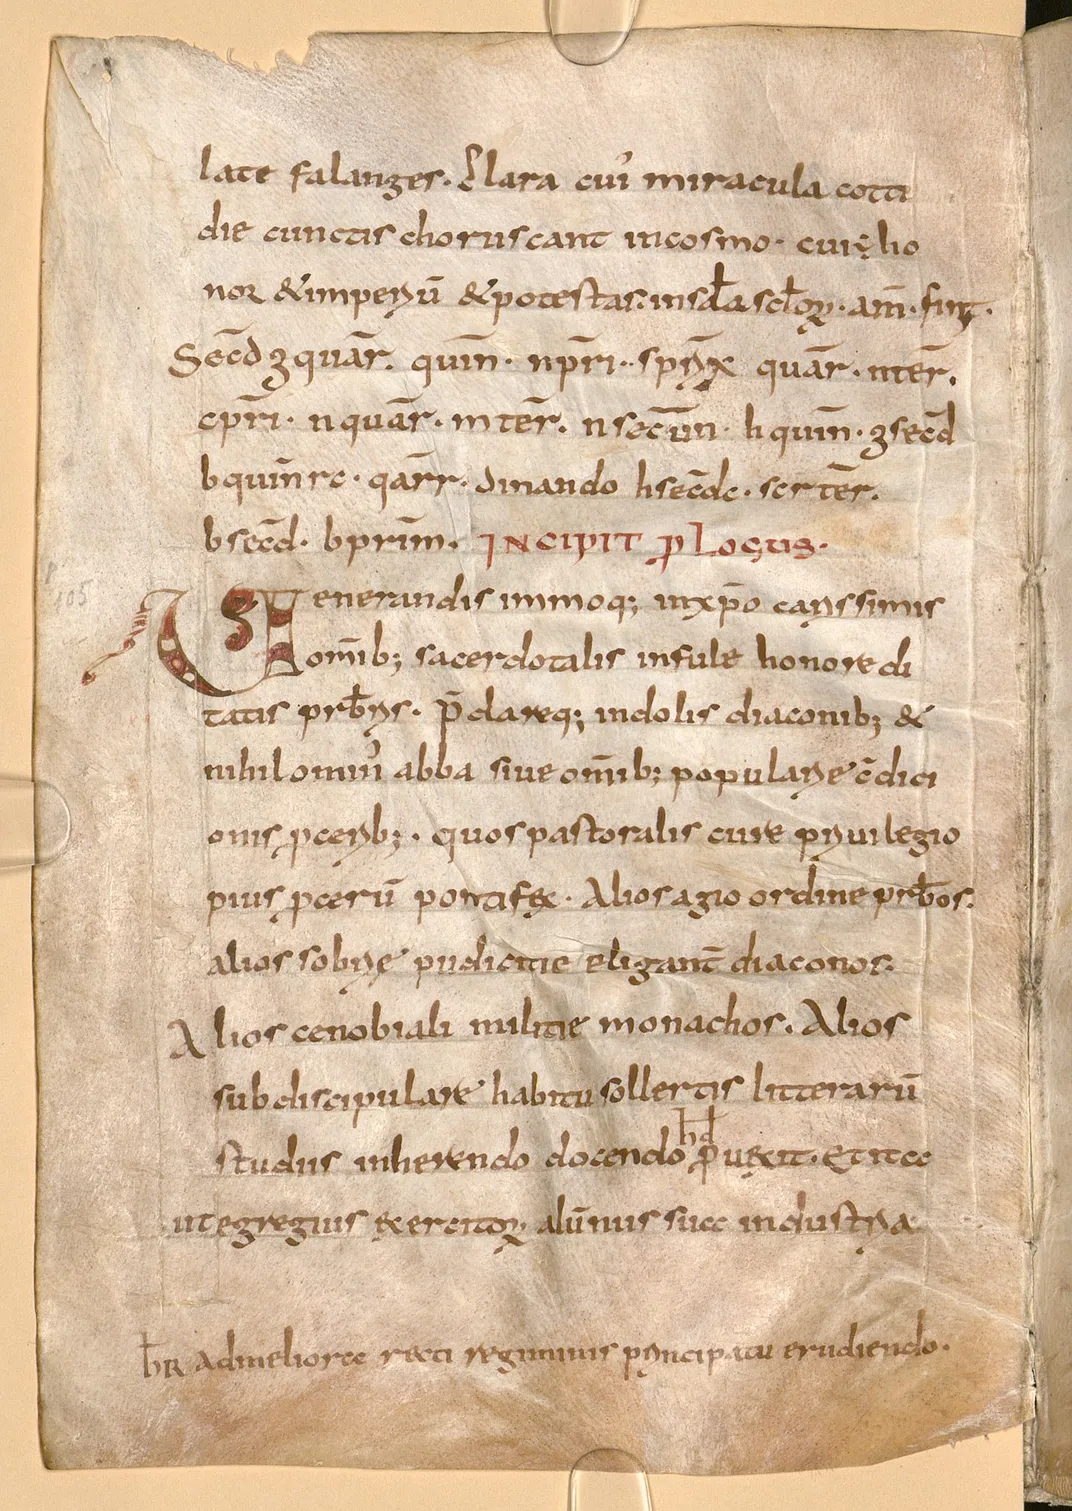 late falanges. Clara cui' miracula cotti
die cunctis choruscant incosmo. cui ę ho
nor &imperiū &potestas. insc̄la sc̄lorꝝ. am̄. finit.
Secd̄ ʒ quār. quīn. n pr̄i.. quār. n tēr.
c pr̄i. n quār. m tēr. n secūn. h quīn. ʒ secd̄
b quīn rc. qārr. dinando h secd̄c. scr tēr.
b secd̄. b prīm. INCIPIT PLOGUS.
Venerandis immoq; inxp̄o carissimis
om̄ib; sacerdotalis infule honore di
tatis prb̄ris. p̄clareq; indolis diaconib; &
nihilomin' abba sive om̄ib; populare c̄dici
onis ꝓcerib;. quos pastoralis cure privilegio
pius ꝓcerū pontifex. Alios agio ordine prb̄os.
alios sobrie pudicitie eligant̄ diaconos.
Alios cenobiali militie monachos. Alios
subdiscipulare habitu sollertis litterarū
studiis inherendo docendo hd̄ ꝓuexit. Et ita
ut egregius exercitorꝝ alūnus sua industria
hr̄ Admeliora recti regiminis principatu erudiendo.